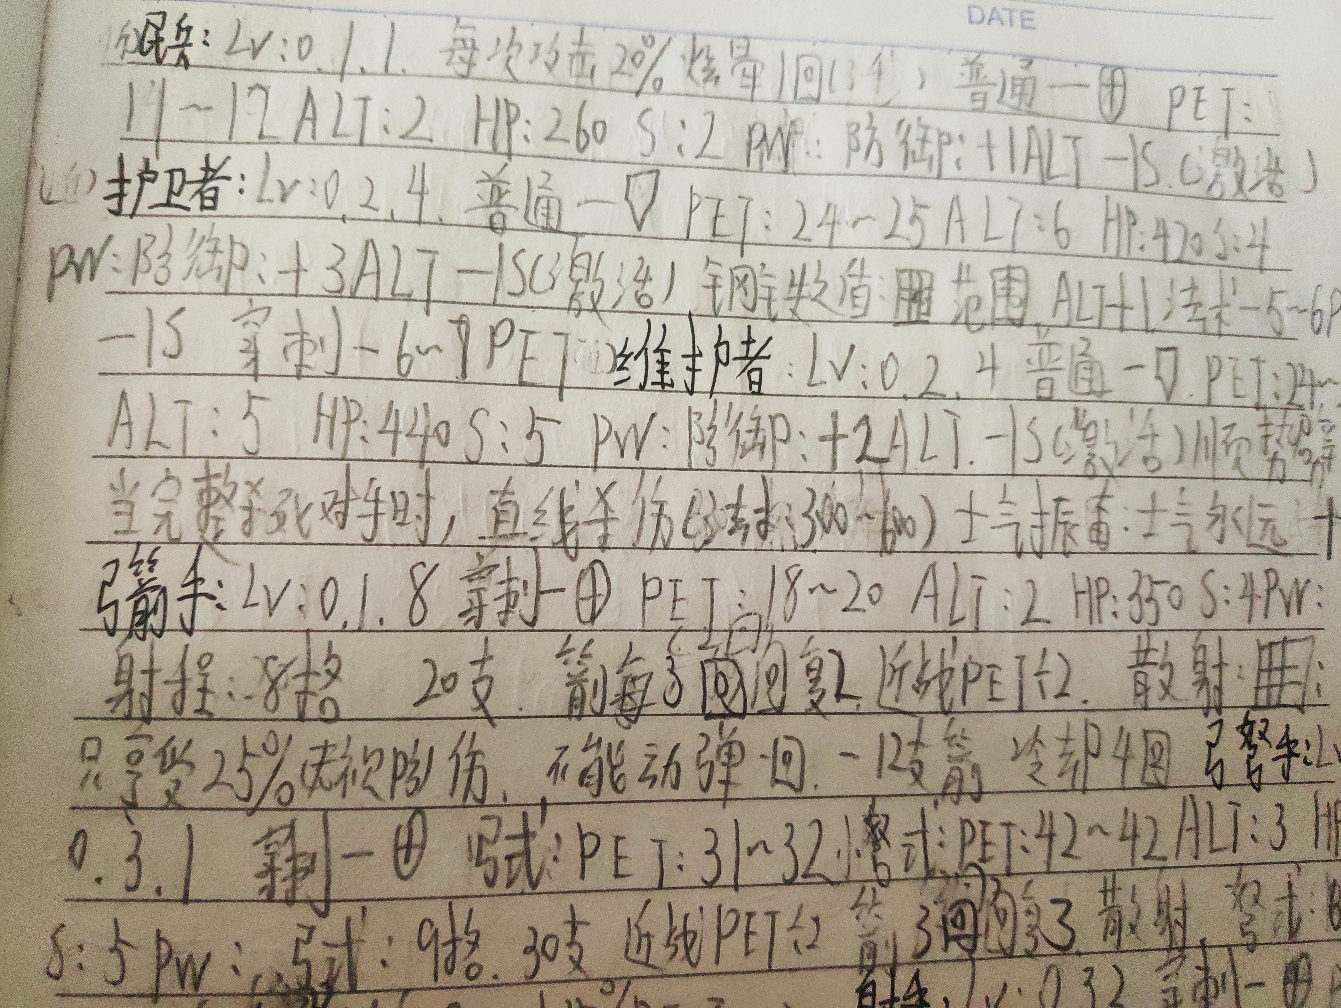 DATE
民兵: Lv:0.1.1. 每次攻击20%炫晕1回(3秒) 普通一⊕ PET:
11~12 ALT:2 HP:260 S:2 PW: 防御P:+1ALT -1S.(激活)
护卫者: Lv:0.2.4. 普通一▽ PET:24~25 ALT:6 HP:420 S:4
PW:防御P:+3ALT -1S(激活) 钢铁之盾: 范围 ALT+1 法术-5~6P
-1S 穿刺-6~7PET 维护者: Lv:0.2.4 普通-▽. PET:24~
ALT:5 HP:440 S:5 PW:防御P:+2ALT.-1S(激活)顺势
当完整杀死对手时,直线杀伤(法术:300~600)士气振奋:士气永远+
弓箭手: Lv:0.1.8 穿刺-⊕ PET:18~20 ALT:2 HP:350 S:4 PW:
射程:8格 20支. 箭每3回回复2. 近战PET÷2. 散射:
只享受25%体积防伤. 不能动弹一回. -12支箭 冷却4回 弓弩手:Lv
0.3.1 穿刺-⊕ 弓式:PET:31~32 弩式:PET:42~42 ALT:3 H
S:5 PW: 弓式:9格. 30支 近战PET÷2 箭3回回复3. 散射. 弩式:
射手:Lv:0.3.2 穿刺-⊕